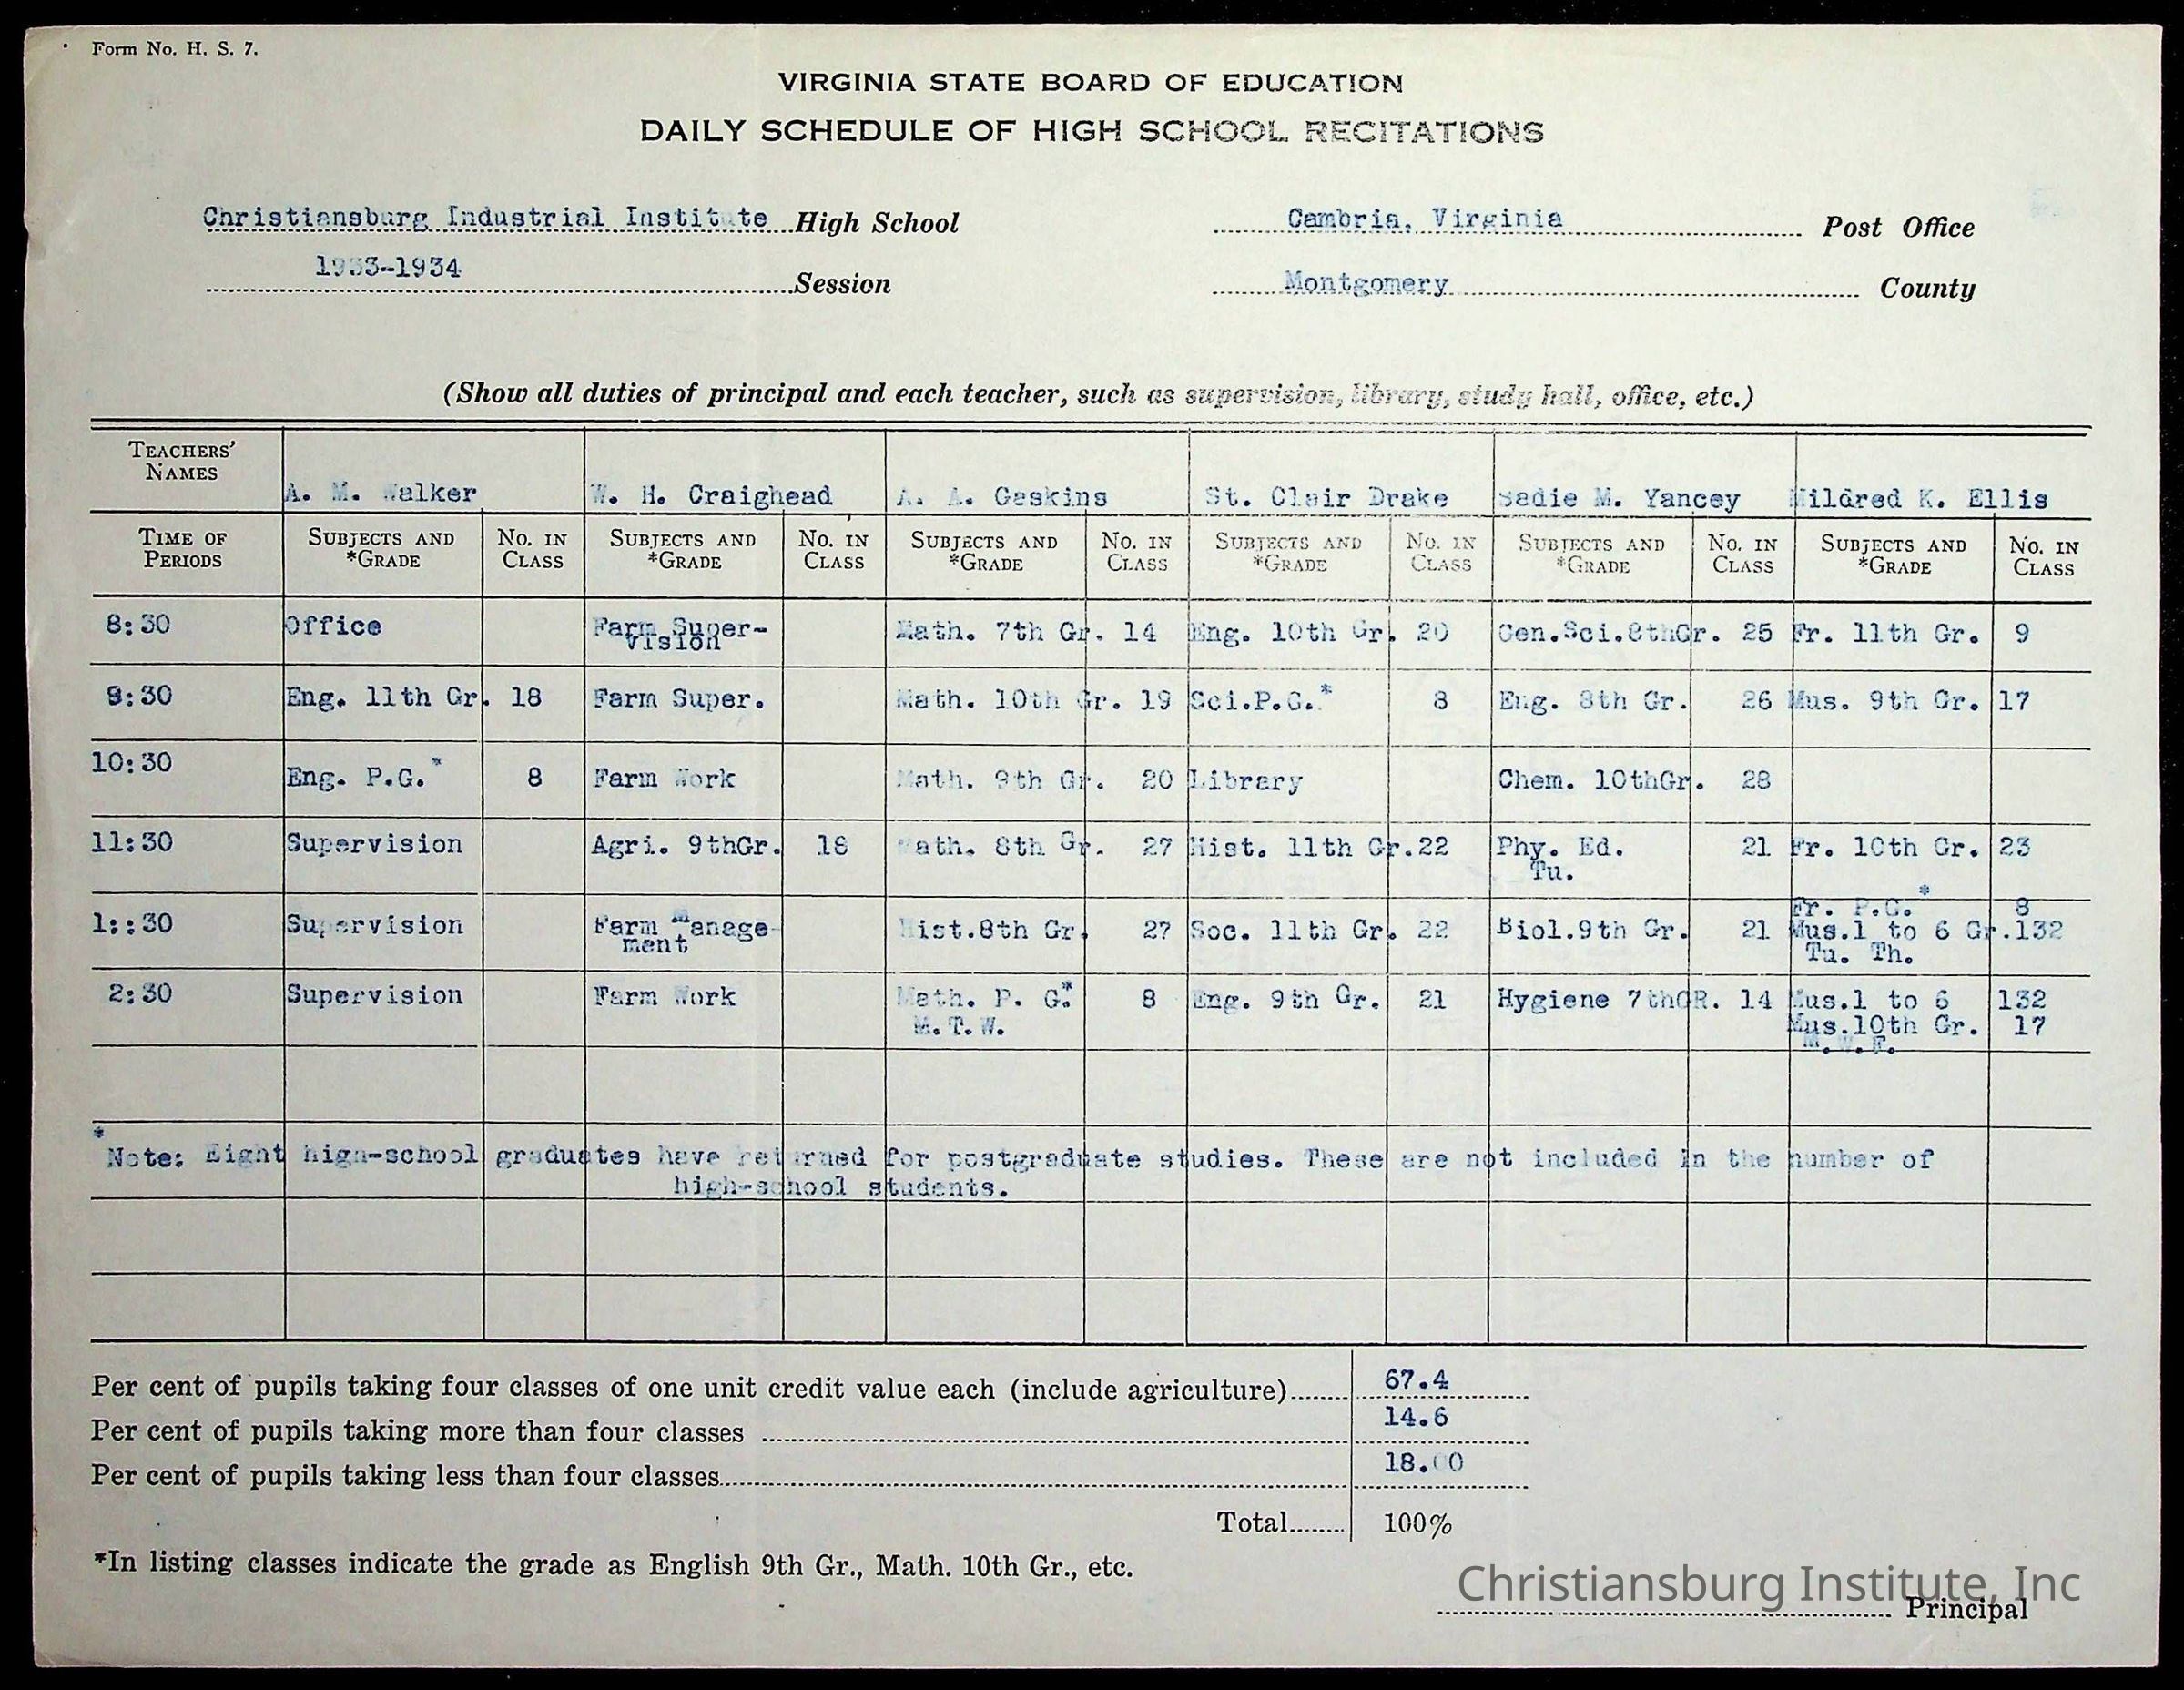 Form No. H. S. 7.
VIRGINIA STATE BOARD OF EDUCATION
DAILY SCHEDULE OF HIGH SCHOOL RECITATIONS
Christiansburg Industrial Institute High School Cambria, Virginia Post Office
1933-1934 Session Montgomery County
(Show all duties of principal and each teacher, such as supervision, library, study hall, office, etc.)
TEACHERS' NAMES A. M. Walker W. H. Craighead A. A. Gaskins St. Clair Drake Sadie M. Yancey Mildred K. Ellis
TIME OF PERIODS SUBJECTS AND *GRADE NO. IN CLASS SUBJECTS AND *GRADE NO. IN CLASS SUBJECTS AND *GRADE NO. IN CLASS SUBJECTS AND *GRADE NO. IN CLASS SUBJECTS AND *GRADE NO. IN CLASS SUBJECTS AND *GRADE NO. IN CLASS
8:30 Office Farm Super-vision Math. 7th Gr. 14 Eng. 10th Gr. 20 Gen.Sci.8thGr. 25 Fr. 11th Gr. 9
9:30 Eng. 11th Gr. 18 Farm Super. Math. 10th Gr. 19 Sci.P.G.* 8 Eng. 8th Gr. 26 Mus. 9th Gr. 17
10:30 Eng. P.G.* 8 Farm Work Math. 9th Gr. 20 Library Chem. 10thGr. 28
11:30 Supervision Agri. 9thGr. 18 Math. 8th Gr. 27 Hist. 11th Gr. 22 Phy. Ed. Tu. 21 Fr. 10th Gr. 23
1::30 Supervision Farm Manage-ment Hist.8th Gr. 27 Soc. 11th Gr. 22 Biol.9th Gr. 21 Fr. P.G.* 8 Mus.1 to 6 Gr.132 Tu. Th.
2:30 Supervision Farm Work Math. P. G.* M.T.W. 8 Eng. 9th Gr. 21 Hygiene 7thGR. 14 Mus.1 to 6 132 Mus.10th Gr. 17 M.W.F.
*Note: Eight high-school graduates have returned for postgraduate studies. These are not included in the number of
high-school students.
Per cent of pupils taking four classes of one unit credit value each (include agriculture) 67.4
Per cent of pupils taking more than four classes 14.6
Per cent of pupils taking less than four classes 18.00
Total 100%
*In listing classes indicate the grade as English 9th Gr., Math. 10th Gr., etc.
Christiansburg Institute, Inc
Principal